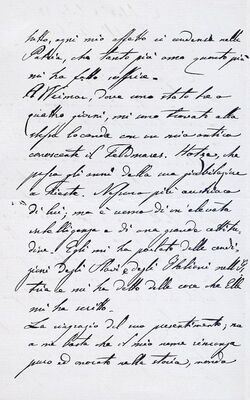 tutto, ogni mio affetto si condensa nella
Patria, che tanto più amo quanto più
mi ha fatto soffrire.
A Vienna, dove sono stato tre o
quattro giorni, mi sono trovato alla
stessa locanda con un mio antico
conoscente il Feldmares. che
passa gli anni della sua
a Trieste. Nessuno più austriaco
di lui; ma è uomo di un elevata
intelligenza e di una grande
dine! Egli mi ha parlato delle condi-
zioni degli Slavi e degli Italiani nell'I-
stria e mi ha detto delle cose che Ella
mi ha scritto.
La ringrazio del suo presentimento, ma
a me basta che il mio nome rimanga
puro ed onorato nella storia,